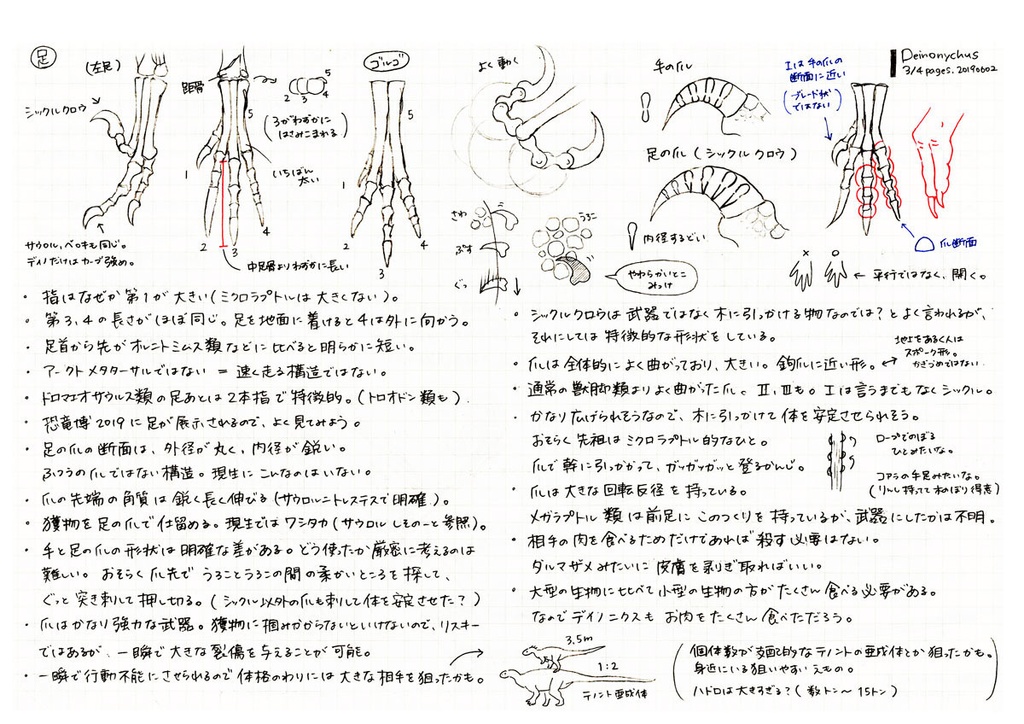 足
(左足)
シックルクロウ
サウロル、ベロキも同じ。
デイノだけはカーブ強め。
距骨
5
1
2
3
4
いちばん
太い
中足骨よりわずかに長い
2
3
4
5
(3がわずかに
はさみこまれる)
ゴルゴ
5
1
2
3
4
よく動く
さわ
ぷす
ぐっ
うろこ
やわらかいとこ
みっけ
手の爪
足の爪(シックルクロウ)
内径するどい
Iは手の爪の
断面に近い
(ブレード状
ではない)
Deinonychus
3/4 pages. 20190602
爪断面
× ○
← 平行ではなく、開く。
・指はなぜか第1が大きい(ミクロラプトルは大きくない)。
・第3、4の長さがほぼ同じ。足を地面に着けると4は外に向かう。
・足首から先がオルニトミムス類などに比べると明らかに短い。
・アークトメタターサルではない = 速く走る構造ではない。
・ドロマエオサウルス類の足あとは2本指で特徴的。(トロオドン類も)
・恐竜博2019に足が展示されるので、よく見てみよう。
・足の爪の断面は、外径が丸く、内径が鋭い。
ふつうの爪ではない構造。現生にこんなのはいない。
・爪の先端の角質は鋭く長く伸びる(サウロルニトレステスで明確)。
・獲物を足の爪で仕留める。現生ではワシタカ(サウロルしものーと参照)。
・手と足の爪の形状は明確な差がある。どう使ったか厳密に考えるのは
難しい。おそらく爪先でうろことうろこの間の柔かいところを探して、
ぐっと突き刺して押し切る。(シックル以外の爪も刺して体を安定させた?)
・爪はかなり強力な武器。獲物に掴みかからないといけないので、リスキー
ではあるが、一瞬で大きな裂傷を与えることが可能。
・一瞬で行動不能にさせられるので体格のわりには大きな相手を狙ったかも。
・シックルクロウは武器ではなく木に引っかける物なのでは?とよく言われるが、
それにしては特徴的な形状をしている。
・爪は全体的によく曲がっており、大きい。鉤爪に近い形。
地上をあるく人は
スポーク形。
かぎづめではない
・通常の獣脚類よりよく曲がった爪。II、IIIも。Iは言うまでもなくシックル。
・かなり広げられそうなので、木に引っかけて体を安定させられそう。
おそらく先祖はミクロラプトル的なひと。
爪で幹に引っかかって、ガッガッガッと登るかんじ。
ロープでのぼる
ひとみたいな。
コアラの手足みたいな。
・爪は大きな回転反径を持っている。
メガラプトル類は前足にこのつくりを持っているが、武器にしたかは不明。
・相手の肉を食べるためだけであれば殺す必要はない。
ダルマザメみたいに皮膚を剥ぎ取ればいい。
・大型の生物に比べて小型の生物の方がたくさん食べる必要がある。
なのでデイノニクスもお肉をたくさん食べただろう。
3.5m
1:2
テノント亜成体
(個体数が多め的なテノントの亜成体とか狙ったかも。
身近にいる狙いやすいえもの。
ハドロは大きすぎる?(数トン〜15トン))